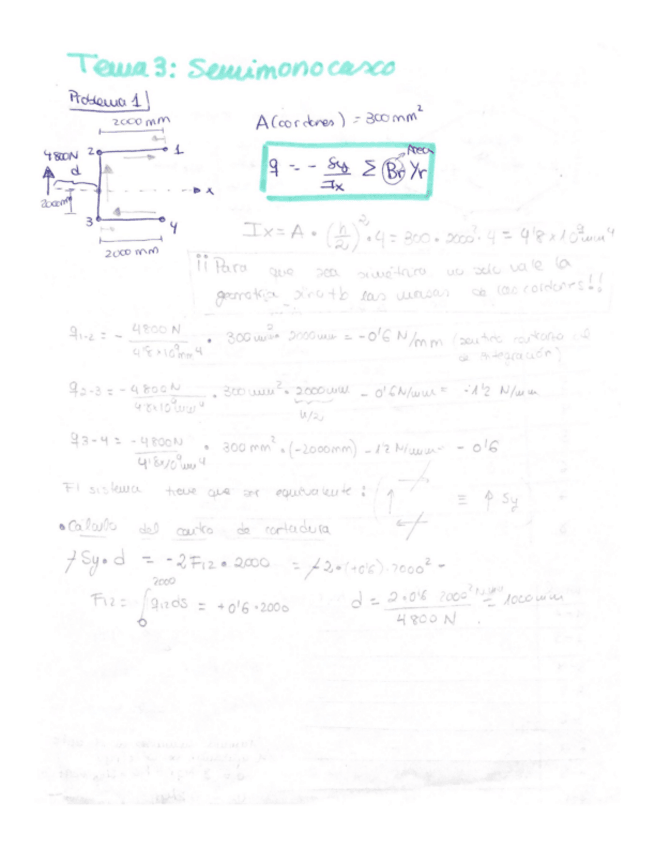 Tema 3: Semimonocasco
Problema 1
2000 mm
A(cordones) = 300 mm²
Area
q = - Sy/Ix Σ Br Yr
4800N
2
1
d
x
3
4
2000 mm
Ix = A · (h/2)² · 4 = 300 · 2000² · 4 = 4'8 x 10⁹ mm⁴
¡¡Para que sea simétrico no solo vale la
geometría sino tb las de los cordones!!
q1-2 = - 4800 N / 4'8x10⁹mm⁴ · 300mm² · 2000mm = -0'6 N/mm (sentido contrario al
de integración)
q2-3 = - 4800 N / 4'8x10⁹mm⁴ · 300mm² · 2000mm - 0'6N/mm = -1'2 N/mm
h/2
q3-4 = -4800N / 4'8x10⁹mm⁴ · 300 mm² · (-2000mm) - 1'2 N/mm = - 0'6
El sistema tiene que ser equivalente: ≡ Sy
• Calculo del centro de cortadura
Sy · d = -2F12 · 2000 = -2 · (+0'6) · 2000² =
F12 = ∫ q12 ds = +0'6 · 2000
2000
0
d = 2·0'6 2000² N·mm / 4800 N = 1000mm